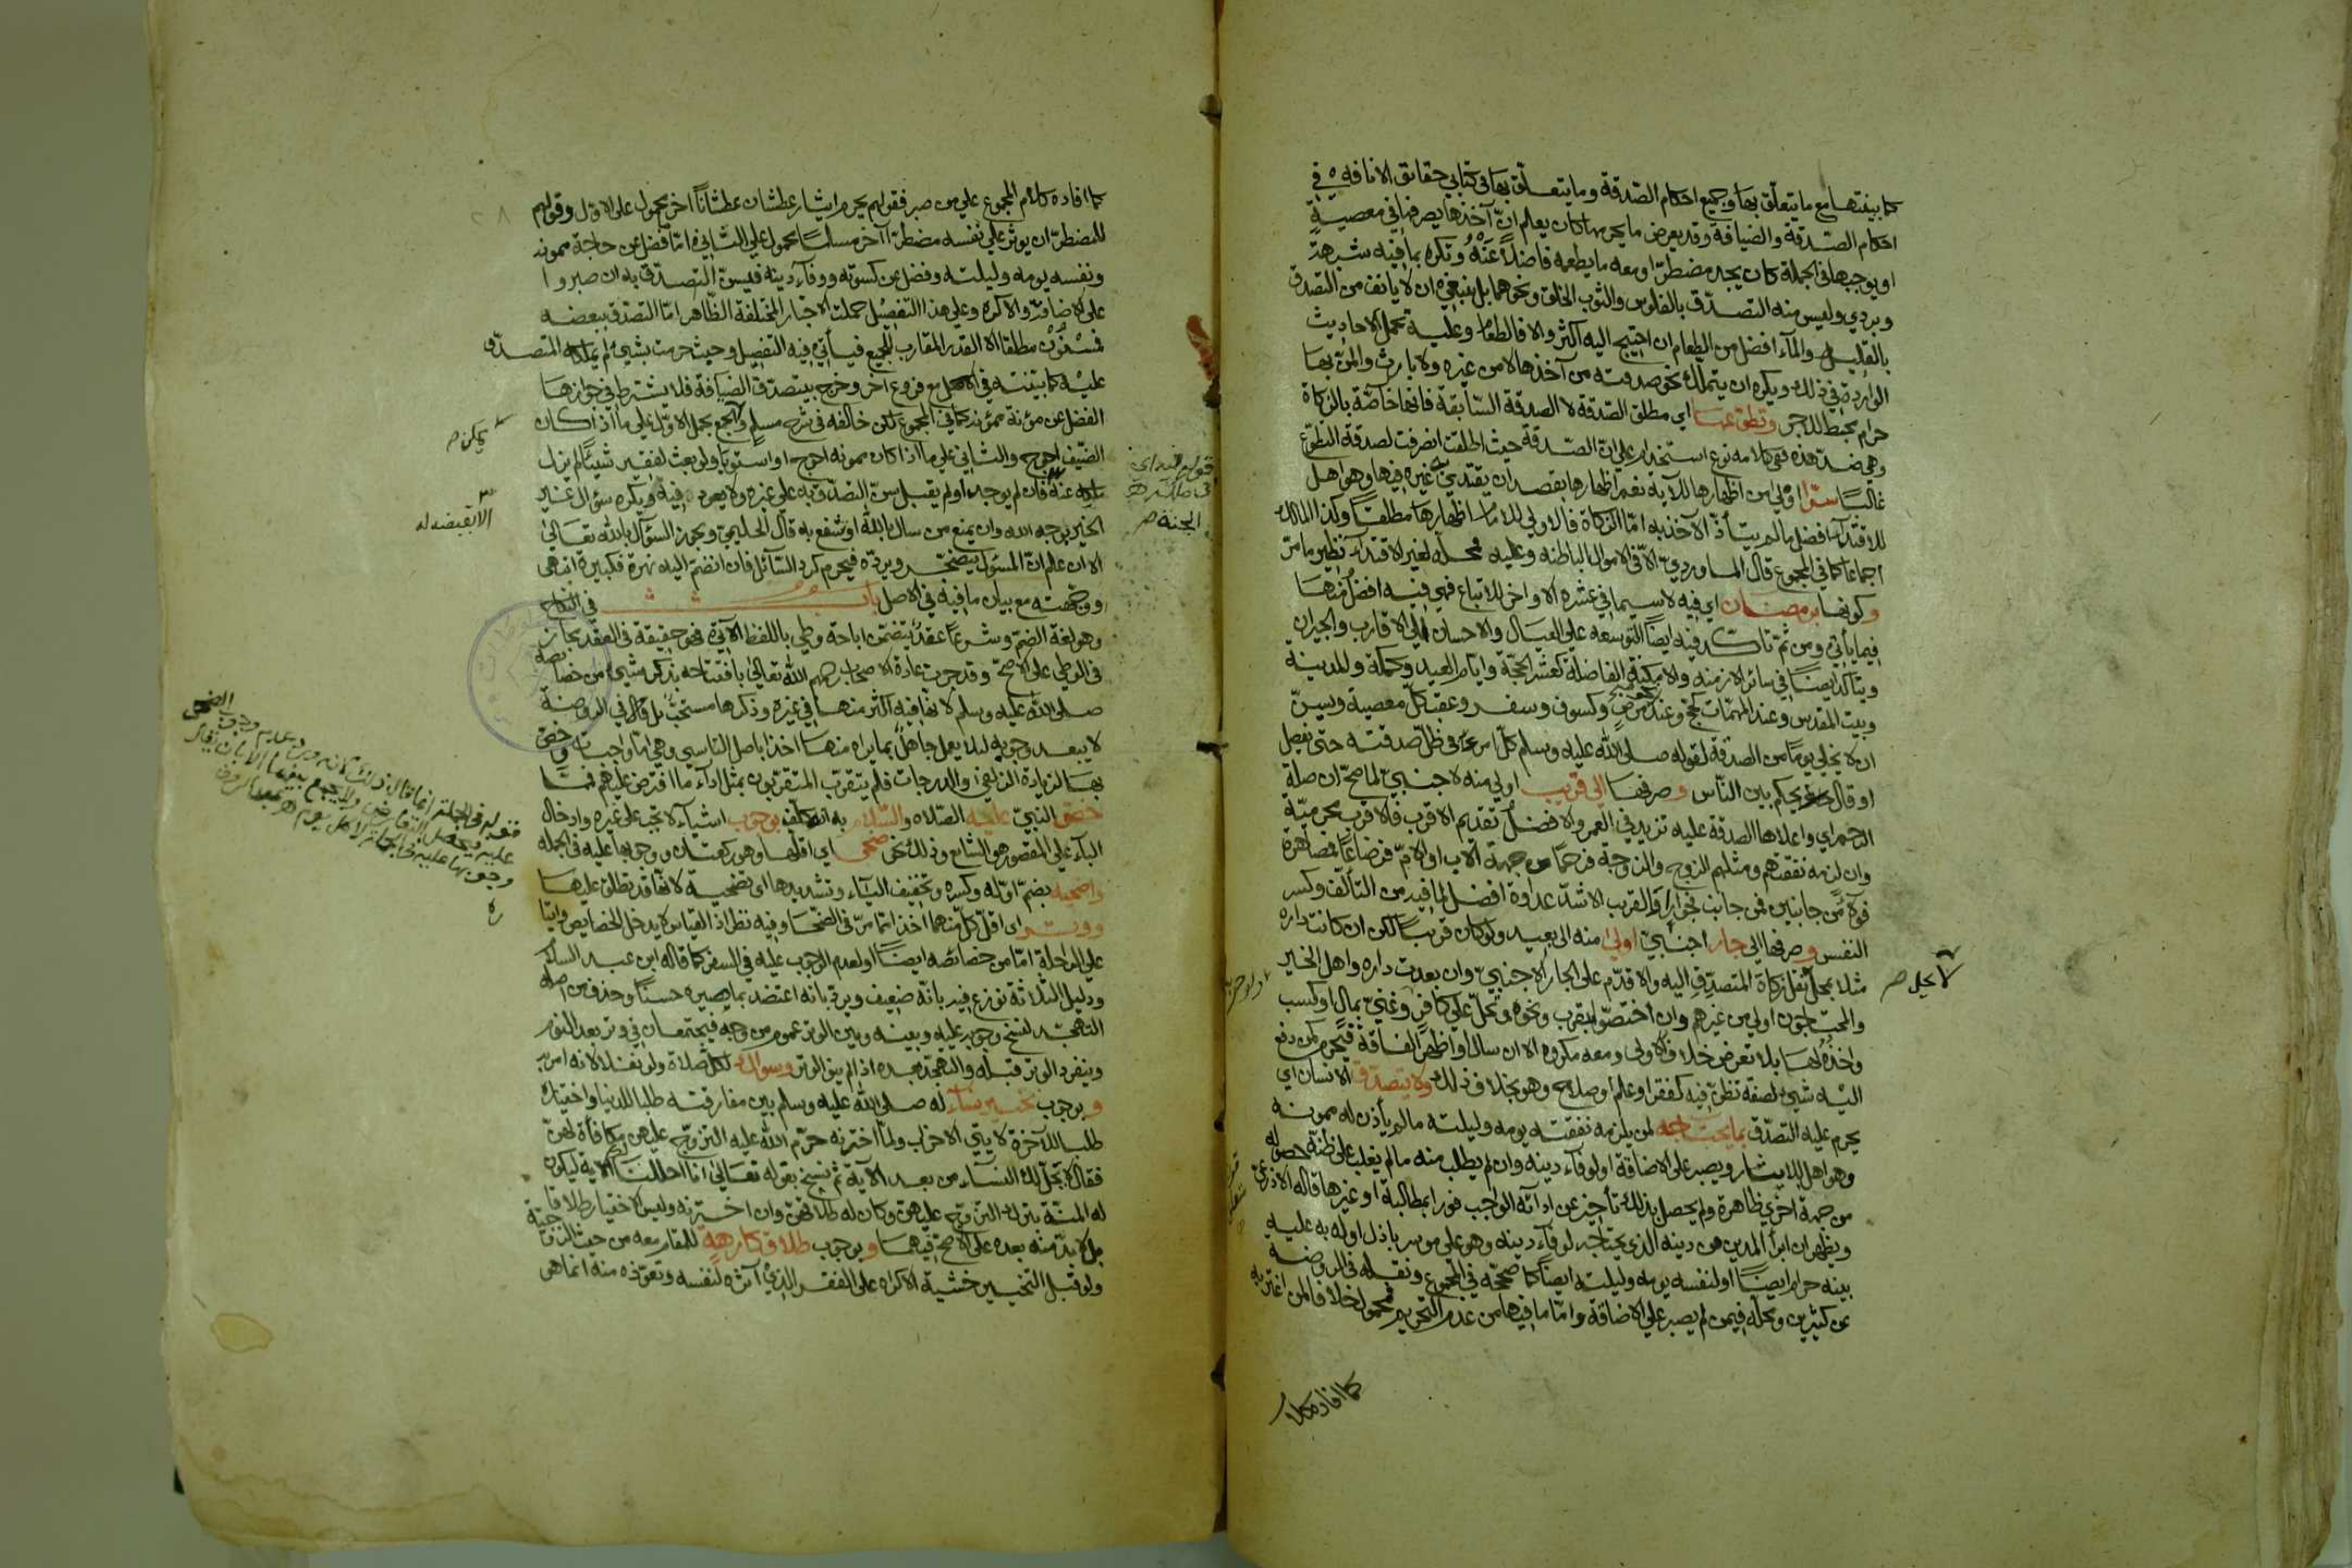 كما بينتها مع ما يتعلق بها وجميع احكام الصدقة وما يتعلق بها في كتابي حقائق الانافة في
احكام الصدقة والضيافة وقد يعرض ما يحرمها كان يعلم ان آخذها يصرفها في معصية
او يوجبها في الجملة كان يجد مضطرا ومعه ما يطعمه فاضلا عنه وتكره بما فيه شبهة
وبردي وليس منه التصدق بالفلوس والثوب الخلق ونحوهما بل ينبغي ان لا يانف من التصدق
بالقليل والماء افضل من الطعام ان احتيج اليه اكثر والا فالطعام وعليه تحمل الاحاديث
الواردة في ذلك ويكره ان يتملك نحو صدقته من آخذها لا من غيره ولا بارث والمن بها
حرام محبط للاجر وتطوعها اي مطلق الصدقة لا الصدقة السابقة فانها خاصة بالزكاة
وهي ضد هذه ففي كلامه نوع استخدام على ان الصدقة حيث اطلقت انصرفت لصدقة التطوع
غالبا سرا اولى من اظهارها للاية نعم اظهارها بقصد ان يقتدي به غيره فيها وهو اهل
للاقتداء افضل ما لم يتأذ الآخذ به اما الزكاة فالاولى للامام اظهارها مطلقا وكذا المالك
اجماعا كما في المجموع قال الماوردي الا في الاموال الباطنه وعليه فمحله لغير الاقتداء نظير ما مر
وكونها برمضان اي فيه لاسيما في عشره الاواخر للاتباع فهي فيه افضل منها
فيما يأتي ومن ثم تأكد فيه ايضا التوسعه على العيال والاحسان الى الاقارب والجيران
ويتأكد ايضا في سائر الازمنه والامكنة الفاضلة كعشر الحجة وايام العيد وكمكة والمدينة
وبيت المقدس وعند المهمات كحج وعند مرض وكسوف وسفر وعقب كل معصية ويسن
ان لا يخلي يوما من الصدقة لقوله صلى الله عليه وسلم كل امرئ في ظل صدقته حتى يفصل
او قال يحكم بين الناس وصرفها الى قريب اولى منه لاجنبي لما صح ان صلة
الرحم اي واعلاها الصدقة عليه تزيد في العمر والافضل تقديم الاقرب فالاقرب بحرمية
وان لزمه نفقتهم ومثلهم الزوج والزوجة فرحما من جهة الاب او الام فرضاعا فمصاهرة
فولاء من جانبين فمن جانب فجوارا والقريب الاشد عداوة افضل لما فيه من التألف وكسر
النفس وصرفها الى جار اجنبي اولى منه الى بعيد ولو كان قريبا لكن ان كانت داره
مثلا بمحل نقل زكاة المتصدق اليه والا قدم على الجار الاجنبي وان بعدت داره واهل الخير
والمحتاجون اولى من غيرهم وان اختصوا بقرب ونحوه وتحل على كافر وغني بمال او كسب
واخذه لها بلا تعرض خلاف الاولى ومعه مكروه الا ان سال او اظهر الفاقة فيحرم كمن دفع
اليه شيء لصفة تظن فيه كفقر او علم او صلاح وهو بخلاف ذلك ولا يتصدق الانسان اي
يحرم عليه التصدق بما يحتاجه لمن يلزمه نفقته يومه وليلته ما لم يأذن له ممونه
وهو اهل للايثار ويصبر على الاضاقة او لوفاء دينه وان لم يطلب منه ما لم يغلب على ظنه حصوله
من جهة اخرى ظاهرة ولم يحصل بذلك تأخير عن ادائه الواجب فورا بمطالبة او غيرها قاله الاذرعي
ويظهر ان ابرأ المدين من دينه الذي يحتاجه لوفاء دينه وهو على موسر باذل او له به عليه
بينه حرام ايضا او لنفسه يومه وليلته ايضا كما صححه في المجموع ونقله في الروضة
عن كثيرين ومحله فيمن لم يصبر على الاضاقة واما ما فيها من عدم التحريم فمحمول خلافا لمن اغتر به
لا يحل صح
كما افاده كلام
كما افاده كلام المجموع على من صبر فقولهم يحرم ايثار عطشان عطشانا آخر محمول على الاول وقولهم
للمضطر ان يوثر على نفسه مضطرا آخر مسلما محمول على الثاني اما فضل عن حاجة ممونه
ونفسه يومه وليلته وفضل عن كسوته ووفاء دينه فيسن التصدق به ان صبروا
على الاضاقة والا كره وعلى هذا التفصيل حملت الاخبار المختلفة الظاهر اما التصدق ببعضه
فمسنون مطلقا الا القدر المقارب للجميع فيأتي فيه التفصيل وحيث حرمت بشيء لم يملكه المتصدق
عليه كما بينته في الاصل مع فروع اخر وخرج بيتصدق الضيافة فلا يشترط في جوازها
الفضل عن مؤنة ممونه كما في المجموع لكن خالفه في شرح مسلم والجمع بحمل الاول على ما اذا كان
الضيف احوج والثاني على ما اذا كان ممونه احوج او استويا ولو بعث لفقير شيئا لم يزل
ملكه عنه فان لم يوجد او لم يقبل سن التصدق به على غيره ولا يعود فيه ويكره سؤال غير
الخير بوجه الله وان يمنع من سال بالله او شفع به قال الحليمي ويجوز السؤال بالله تعالى
الا ان علم ان المسؤول يتضجر ويرده فيحرم كرد السائل فان انضم اليه نهره فكبيرة انتهى
ووجهته مع بيان ما فيه في الاصل باب في النكاح
وهو لغة الضم وشرعا عقد يتضمن اباحة وطي باللفظ الآتي فهو حقيقة في العقد مجاز
في الوطي على الاصح وقد جرت عادة الاصحاب رحمهم الله تعالى بافتتاحه بذكر شيء من خصائصه
صلى الله عليه وسلم لانها فيه اكثر منها في غيره وذكرها مستحب بل قال في الروضة
لا يبعد وجوبه ليلا يعمل جاهل بما يراه منها اخذا باصل التاسي وهي اما واجبات وخص
بها لزيادة الزلفى والدرجات فلم يتقرب المتقربون بمثل اداء ما افترض عليهم فمما
خص النبي عليه الصلاة والسلام به انه كلف بوجوب اشياء لا تجب على غيره وادخال
الباء على المقصور هو الشايع وذلك نحو ضحى اي اقلها وهو ركعتان ووجوبها عليه في الجملة
واضحيه بضم اوله وكسره وتخفيف الياء وتشديدها اي تضحية لانها قد تطلق عليها
ووتر اي اقل كل منهما اخذا مما مر في الضحا وفيه نظر اذ القياس لا يدخل الخصايص واتيا
على الراحلة اما من خصائصه ايضا او لعدم الوجوب عليه في السفر كما قاله ابن عبد السلام
ودليل الثلاثة نوزع فيه بانه ضعيف ويرد بانه اعتضد بما يصيره حسنا وحذف من اصله
التهجد لنسخ وجوبه عليه وبينه وبين الوتر عموم من وجه فيجتمعان في وتر بعد النوم
وينفرد الوتر قبله والتهجد بعده اذا لم ينو الوتر وسواك لكل صلاة ولو نفلا لانه امر به
وبوجوب تخيير نسائه له صلى الله عليه وسلم بين مفارقته طلبا للدنيا واختياره
طلبا للآخرة لايتي الاحزاب ولما اخترنه حرم الله عليه التزوج عليهن مكافأة لهن
فقال لا تحل لك النساء من بعد الآية ثم نسخ بقوله تعالى انا احللنا لك الاية ليكون
له المنة بترك التزوج عليهن وكان له طلاقهن وان اخترنه وليس الاختيار طلاقا
بل لا بد منه بعده على الاصح فيهما وبوجوب طلاق كارهة للمقام معه من حيث الزوجية
ولو قبل التخيير خشية الاكراه على الفقر الذي آثره لنفسه وتعوذه منه انما هي
يمكن صح
الا بقبضه له
الجنة صح